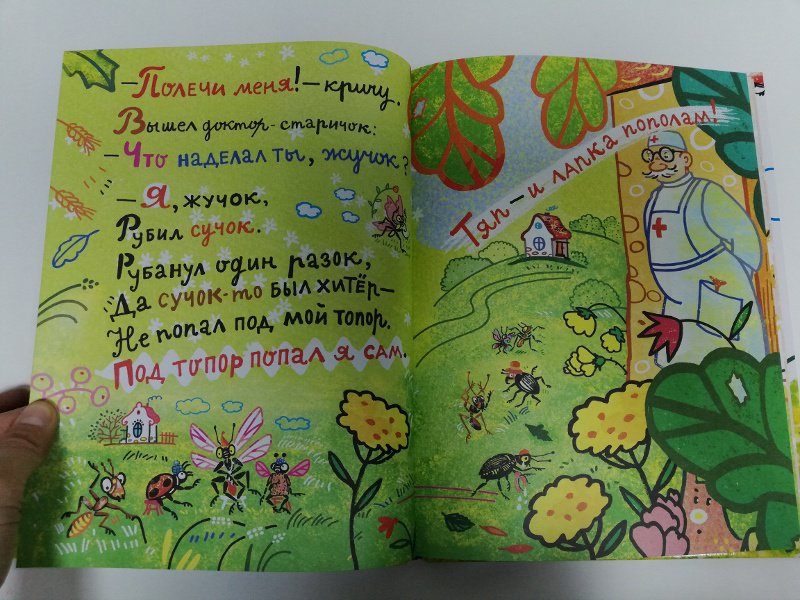 —Полечи меня!—кричу.
Вышел доктор-старичок:
—Что наделал ты, жучок?
—Я, жучок,
Рубил сучок.
Рубанул один разок,
Да сучок-то был хитёр—
Не попал под мой топор.
Под топор попал я сам.
Тяп—и лапка пополам!